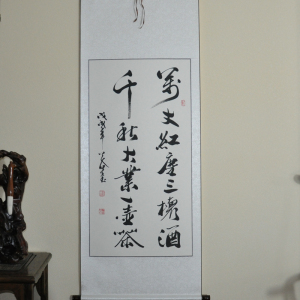 萬丈紅塵三杯酒
千秋大業一壺茶
戊戌年